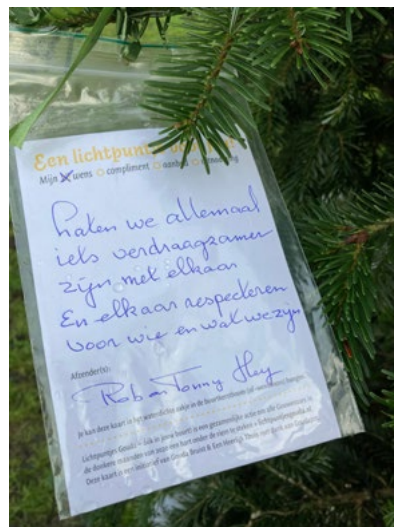 Een lichtpuntje
Mijn wens compliment aanbod
Laten we allemaal
iets verdraagzamer
zijn met elkaar
En elkaar respecteren
voor wie en wat we zijn
Afzender(s):
Rob en Tonny
Je kan deze kaart in het waterdichte zakje in de buurtkerstboom (of
Lichtpuntjes Gouda – (ook in jouw buurt) is een gezamenlijke actie om alle Gouwenaars in
de donkere maanden van 2020 een hart onder de riem te steken
Deze kaart is een initiatief van Gouda Bruist & Een Heerlijk Thuis